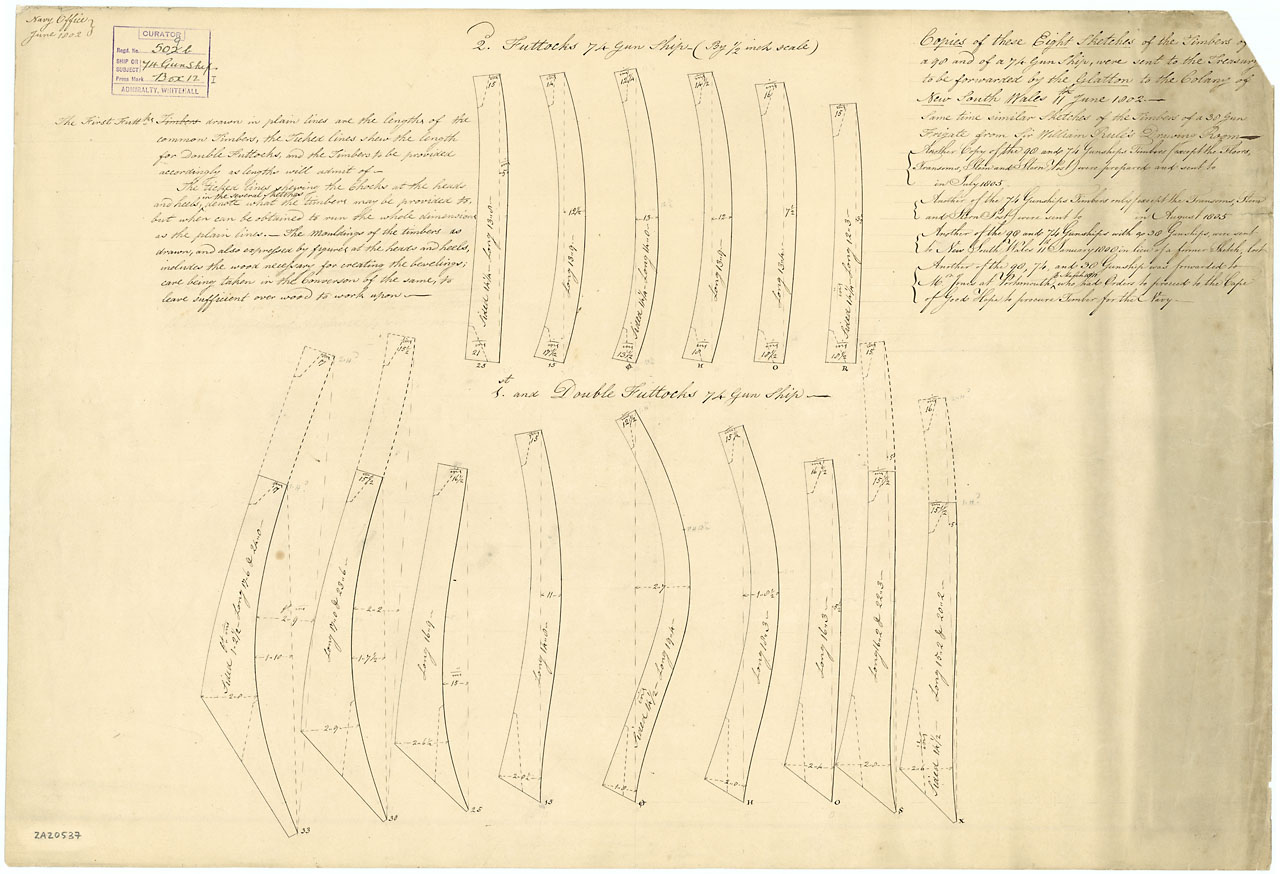 Navy Office
June 1802
CURATOR
Regd. No.
SHIP OR SUBJECT 74 Gun Ship
Press Mark Box 12 I
ADMIRALTY, WHITEHALL
2. Futtocks 74 Gun Ship (By 1/2 inch scale)
Copies of these Eight Sketches of the Timbers of
a 98 and of a 74 Gun Ship, were sent to the Treasury
to be forwarded by the Glatton to the Colony of
New South Wales 11th June 1802.—
Same time similar Sketches of the Timbers of a 38 Gun
Frigate from Sir William Rule's Drawing Room—
Another Copy of the 98 and 74 Gunships Timbers (except the Floors,
Transoms, Stem and Stern Post) were prepared and sent to
in July 1805
Another of the 74 Gunships Timbers only (except the Transoms, Stem
and Stern Post) were sent to in August 1805
Another of the 98 and 74 Gunships with 38 Gunships, were sent
to New South Wales January in lieu of a former Sketch, lost
Another of the 98, 74, and 38 Gunship was forwarded to
Mr Jones at Portsmouth, who had Orders to proceed to the Cape
of Good Hope to procure Timber for the Navy—
The First Futtks Timbers drawn in plain lines are the lengths of the
common Timbers, the Ticked lines shew the length
for Double Futtocks, and the Timbers to be provided
accordingly as lengths will admit of—
The ticked lines shewing the Chocks at the heads
and heels, in the several sketches denote what the timbers may be provided to,
but when can be obtained to run the whole dimensions
as the plain lines.— The mouldings of the timbers as
drawn, and also expressed by figures at the heads and heels,
includes the wood necessary for creating the bevelings;
care being taken in the Conversion of the same, to
leave sufficient over wood to work upon—
15 14 12 3/4 14 1/2 16 15
Sided 14 1/4 Long 13-0
12 1/2
Long 13-9
13
Sided 14 1/4 Long 14-0
12
Long 13-9
Long 13-4
Sided 14 1/4 Long 12-3
21
25 13 ⊕ H O R
1st. and Double Futtocks 74 Gun Ship—
17 15 1/2 15 16
17 15 1/2 16 1/2 13 12 1/2 15 1/2 16 1/2 15 1/2 15 1/2
Sided 1-2 1/2 Long 17-6 & 24-0
2-9
1-10
2-0
Long 17-0 & 23-6
2-2
1-7 1/2
2-9
Long 16-9
15
2-6 1/2
Long 14-0
11
2-0 1/2
2-7
Sided 14 1/2 Long 19-4
1-8
1-0 1/2
2-0
Long 16-3
2-4
Long 16-2 & 22-3
2-3
Sided 14 1/2 Long 15-2 & 20-2
33 30 25 13 ⊕ H O S X
ZAZ0537